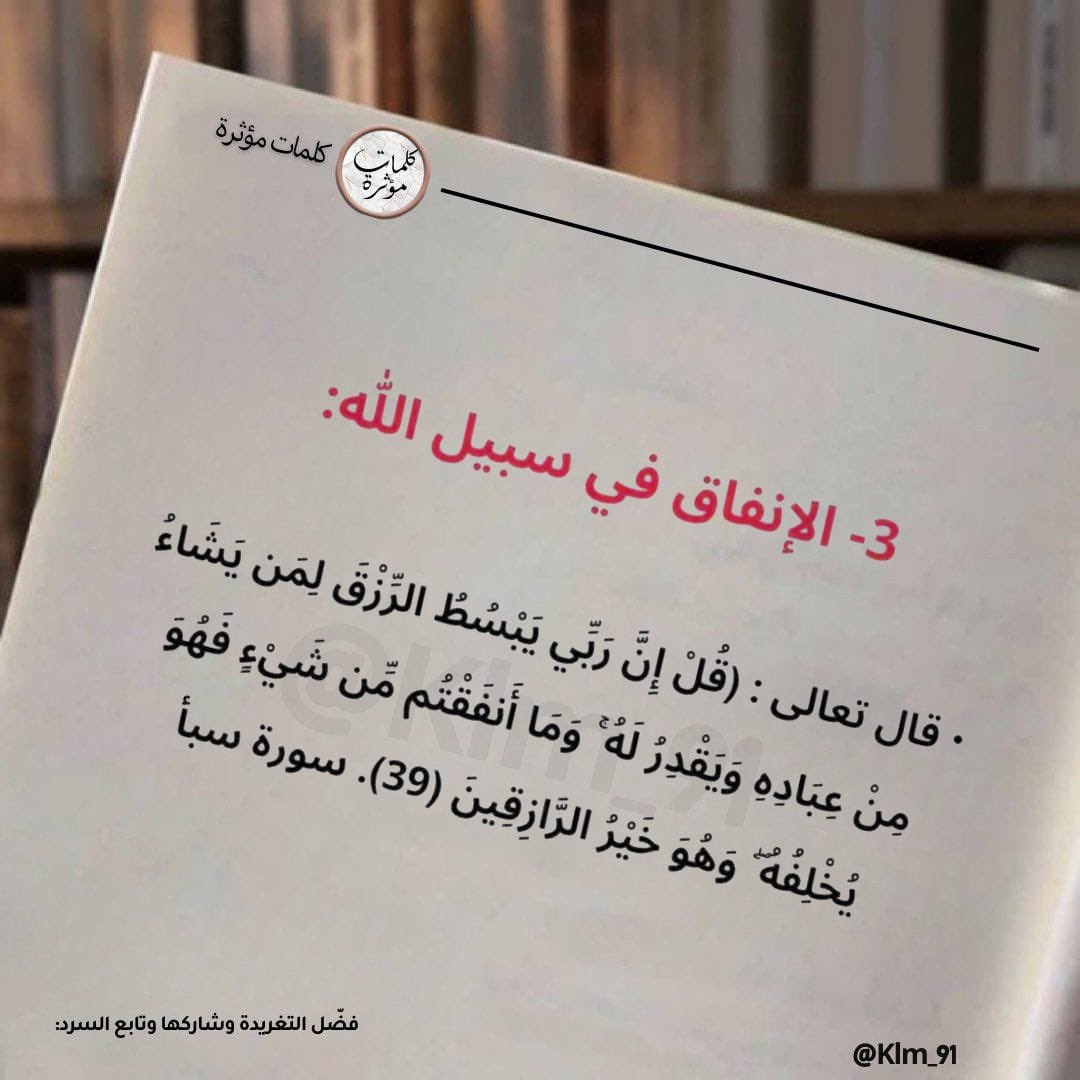 كلمات مؤثرة
كلمات
مؤثرة
3- الإنفاق في سبيل الله:
• قال تعالى : (قُلْ إِنَّ رَبِّي يَبْسُطُ الرِّزْقَ لِمَن يَشَاءُ
مِنْ عِبَادِهِ وَيَقْدِرُ لَهُ ۚ وَمَا أَنفَقْتُم مِّن شَيْءٍ فَهُوَ
يُخْلِفُهُ ۖ وَهُوَ خَيْرُ الرَّازِقِينَ (39). سورة سبأ
@Klm_91
فضّل التغريدة وشاركها وتابع السرد:
@Klm_91